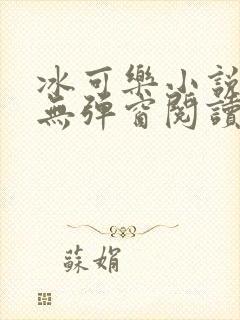 冰可樂小說
無彈窗閱讀
蘇娟